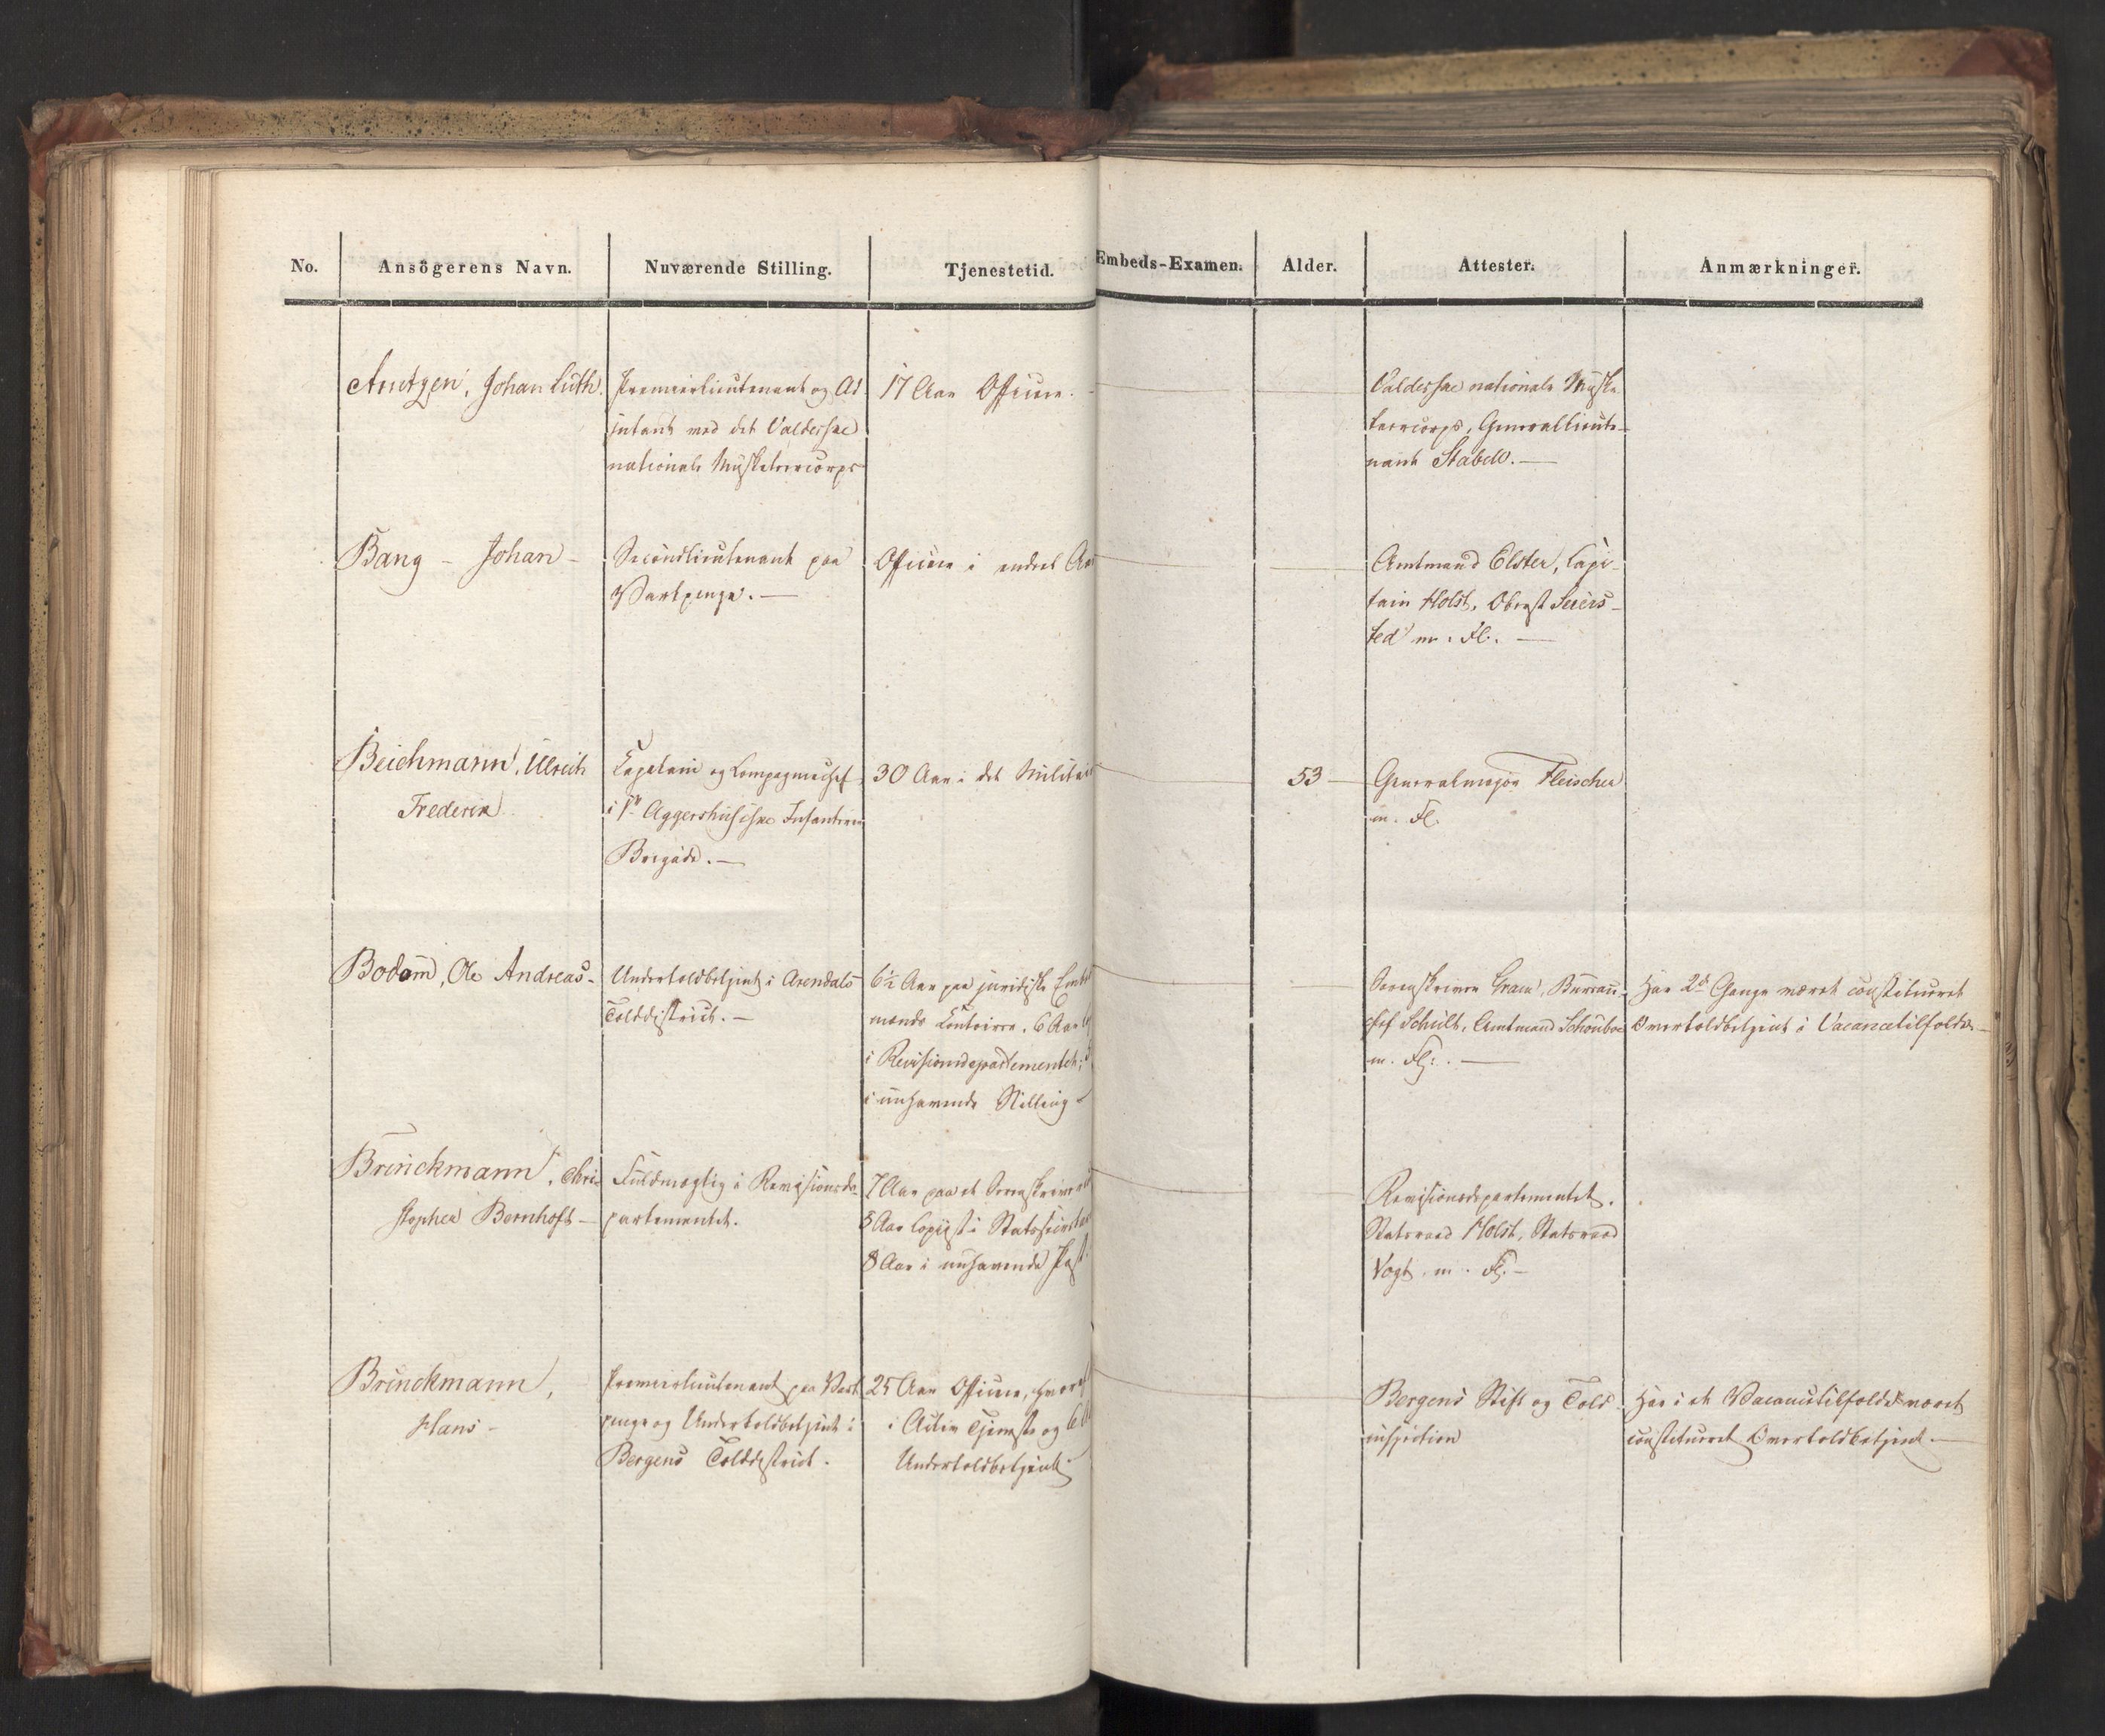 No. Ansögerens Navn. Nuværende Stilling. Tjenestetid. Embeds-Examen. Alder. Attester. Anmærkninger.
Arntzen, Johan Lüth.
Premierlieutenant og Ad
jutant med det Valderske
nationale Musketeercorps
17 Aar Officier.
Valderske nationale Muske
teercorps, Generallieute-
nant Stabell.—
Bang - Johan -
Secondlieutenant paa
Vartpenge.—
Officier i endeel Aar
Amtmand Elster, Capi-
tain Holst, Oberst Seiers-
ted m. Fl.—
Beichmann, Ulrich
Frederik
Capitain og Compagniechef
i 1ste Aggershusiske Infanterie
Brigade.—
30 Aar i det Militaire
53
Generalmajor Fleischer
m. Fl.
Bodom, Ole Andreas-
Undertoldbetjent i Arendals
Tolddistrict.—
6½ Aar paa juridiske Embeds
mænds Contoirer, 6 Aar
i Revisionsdepartementet;
i nuhavende Stilling
Sorenskriver Gram, Bureau-
chef Schult, Amtmand Schönboe
m. Fl:.—
Har 2de Gange været constitueret
Overtoldbetjent i Vacancetilfælde.—
Brinckmann, Chri-
stopher Bernhoft-
Fuldmægtig i Revisionsde-
partementet.
7 Aar paa et Sorenskriver
8 Aar Copiist i Statssecretar
8 Aar i nuhavende Post
Revisionsdepartementet.
Statsraad Holst, Statsraad
Vogt, m. Fl.-
Brinckmann,
Hans-
Premierlieutenant paa Vart
penge og Undertoldbetjent i
Bergens Tolddistrict.
25 Aar Officier, hvoraf
i Activ Tjeneste og 6
Undertoldbetjent
Bergens Stift og Told
inspection
Har i et Vacancetilfælde været
constitueret Overtoldbetjent.—